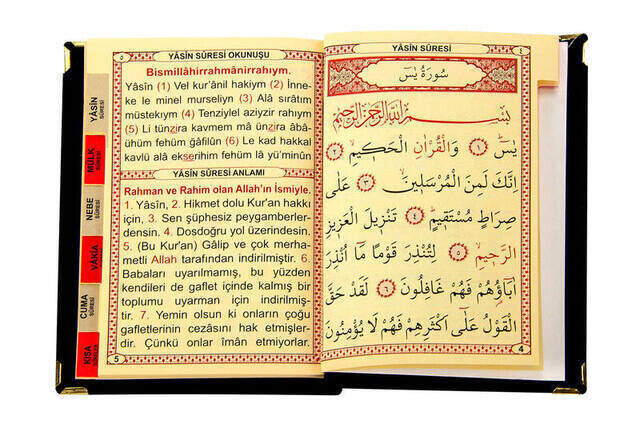 YÂSİN SÛRESİ
MÜLK SÛRESİ
NEBE SÛRESİ
VÂKIA
CUMA SÛRESİ
KISA SÛRELER
٥
YÂSİN SÛRESİ OKUNUŞU
Bismillâhirrahmânirrahıym.
Yâsîn (1) Vel kur'ânil hakiym (2) İnne-
ke le minel murseliyn (3) Alâ sırâtım
müstekıym (4) Tenziylel aziyzir rahıym
(5) Li tünzira kavmem mâ ünzira âbâ-
ühüm fehüm ğâfilûn (6) Le kad hakkal
kavlü alâ ekserihim fehüm lâ yü'minûn
YÂSİN SÛRESİ ANLAMI
Rahman ve Rahim olan Allah'ın İsmiyle.
1. Yâsîn, 2. Hikmet dolu Kur'an hakkı
için, 3. Sen şüphesiz peygamberler-
densin. 4. Dosdoğru yol üzerindesin.
5. (Bu Kur'an) Gâlip ve çok merha-
metli Allah tarafından indirilmiştir. 6.
Babaları uyarılmamış, bu yüzden
kendileri de gaflet içinde kalmış bir
toplumu uyarman için indirilmiş-
tir. 7. Yemin olsun ki onların çoğu
gafletlerinin cezâsını hak etmişler-
dir. Çünkü onlar iman etmiyorlar.
5
YÂSİN SÛRESİ
٤
سُورَةُ يٰسٓ
بِسْمِ اللّٰهِ الرَّحْمٰنِ الرَّحِيمِ
يٰسٓ ﴿١﴾ وَالْقُرْاٰنِ الْحَكِيمِ ﴿٢﴾
اِنَّكَ لَمِنَ الْمُرْسَلِينَ ﴿٣﴾ عَلٰى
صِرَاطٍ مُسْتَقِيمٍ ﴿٤﴾ تَنْزِيلَ الْعَزِيزِ
الرَّحِيمِ ﴿٥﴾ لِتُنْذِرَ قَوْمًا مَٓا اُنْذِرَ
اٰبَٓاؤُهُمْ فَهُمْ غَافِلُونَ ﴿٦﴾ لَقَدْ حَقَّ
الْقَوْلُ عَلٰٓى اَكْثَرِهِمْ فَهُمْ لَا يُؤْمِنُونَ
4